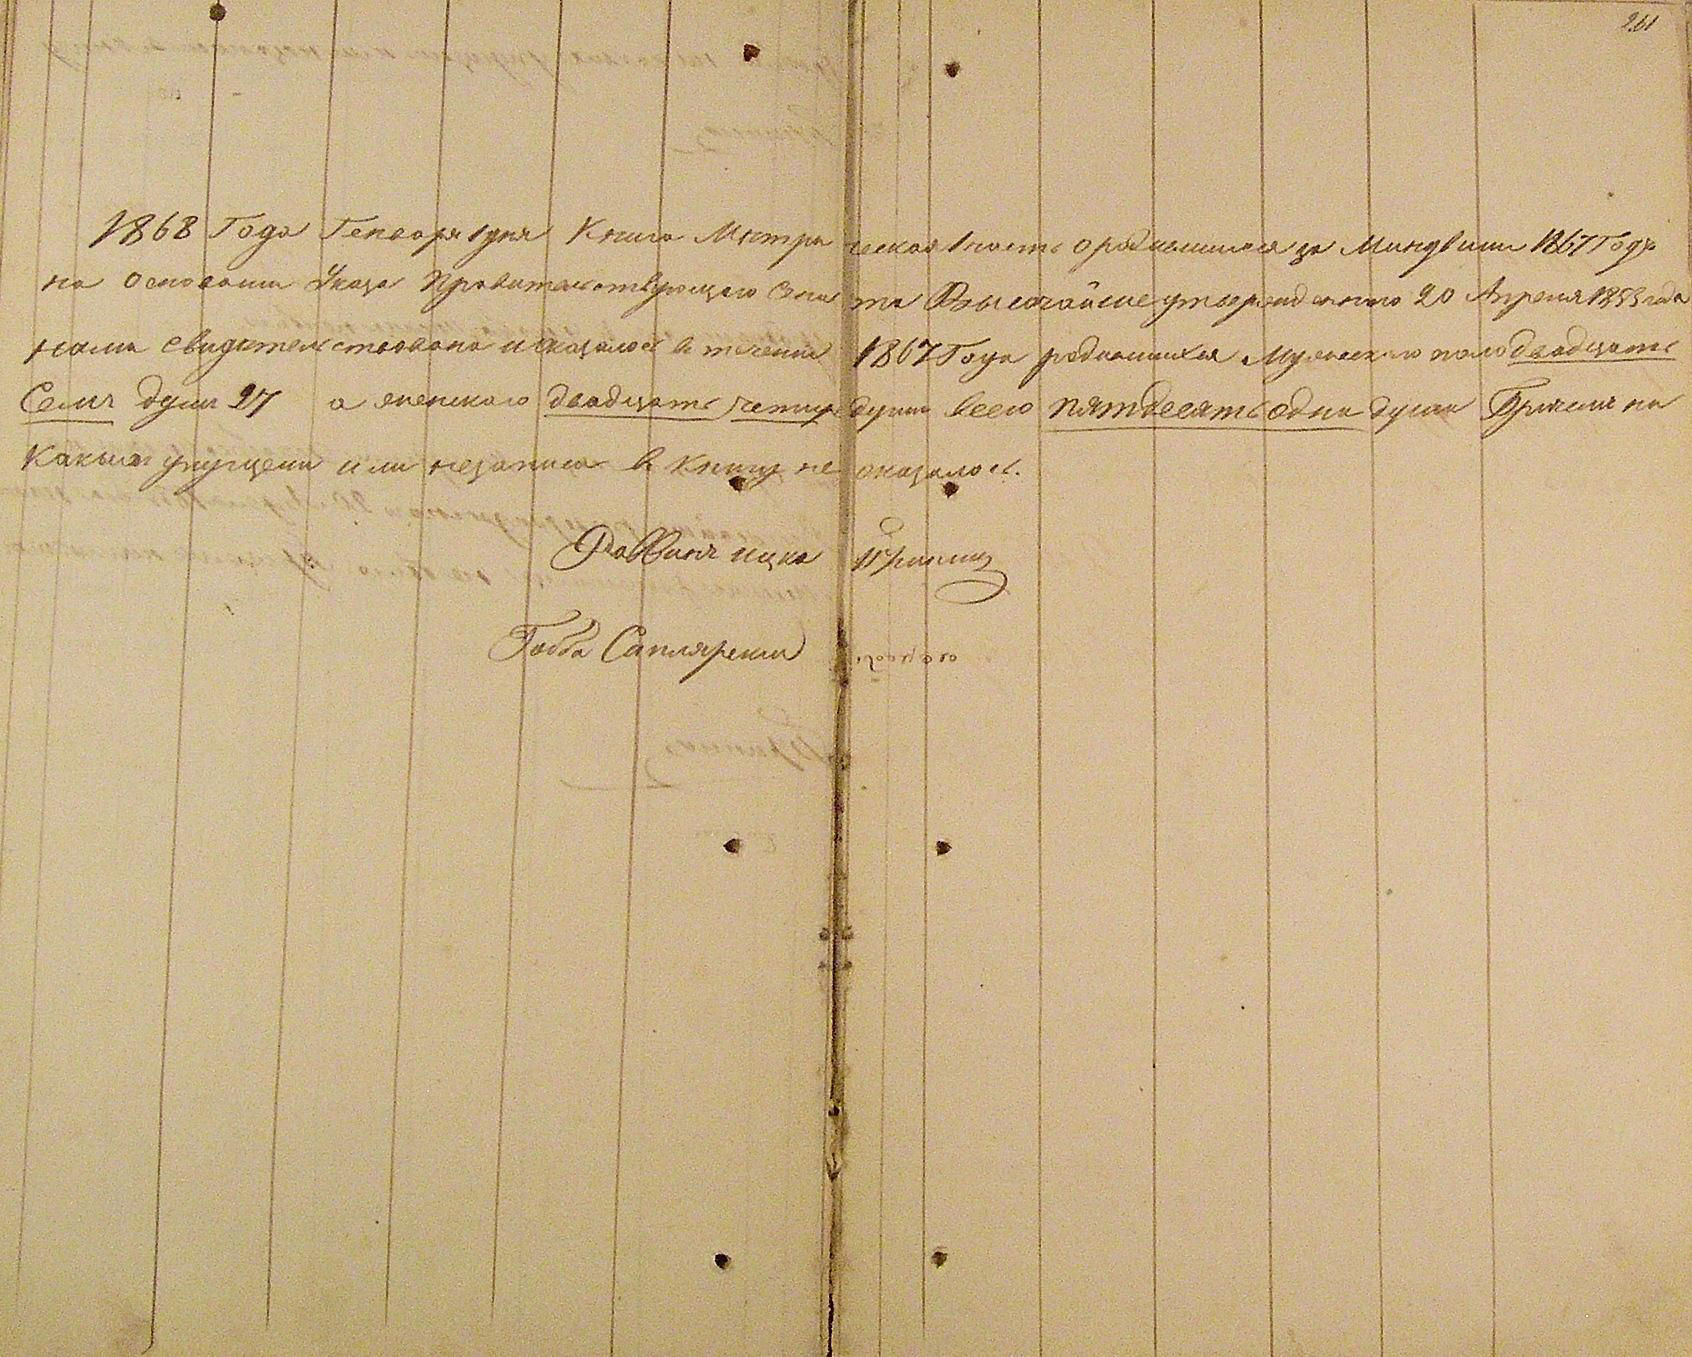 261
1868 Года Генваря 1 дня Книга Метрическая 1 часть о родившихся за Минувший 1867 Годъ
на основании Указа Правительствующаго Сената Высочайше утвержденного 20 Апреля 1853 года
нами свидетельствована и оказалось в течении 1867 Года родившихся Мужескаго пола двадцать
Семь душъ 27 а женского двадцать четыре души всего пятдесять одна душа Причемъ ни
какихъ упущени или незаписа в Книгу не оказалось.
Раввинъ Ицка
Габба